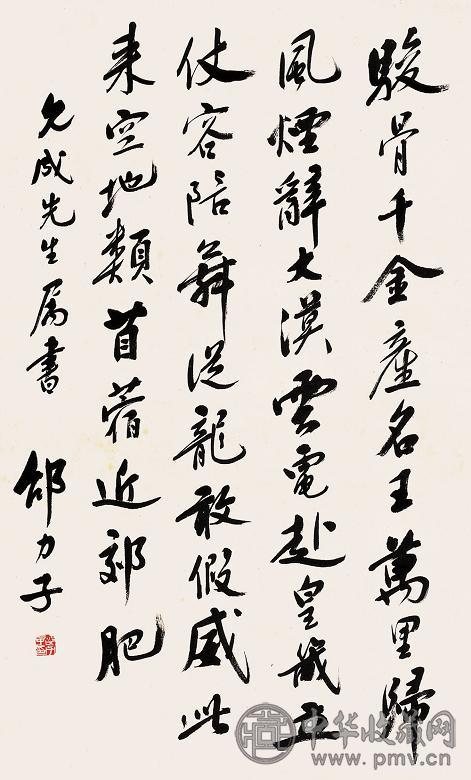 駿骨千金産名王萬里歸
風煙辭大漠雲電赴皇畿立
仗容陪舞從龍敢假威此
来空地類苜蓿近郊肥
允成先生属書
邵力子
中华收藏网
www.pmv.cn